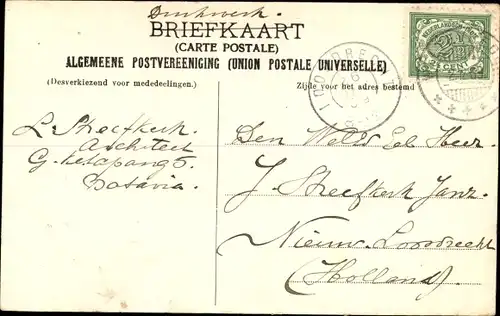 Drukwerk.
BRIEFKAART
(CARTE POSTALE)
ALGEMEENE POSTVEREENIGING (UNION POSTALE UNIVERSELLE)
(Desverkiezend voor mededeelingen.)
Zijde voor het adres bestemd
CENT
L Streefkerk
Architect
G. Ketapang 5.
Batavia.
Den Wel Ed Heer
J. Streefkerk Janz.
Nieuw. Loosdrecht
(Holland).